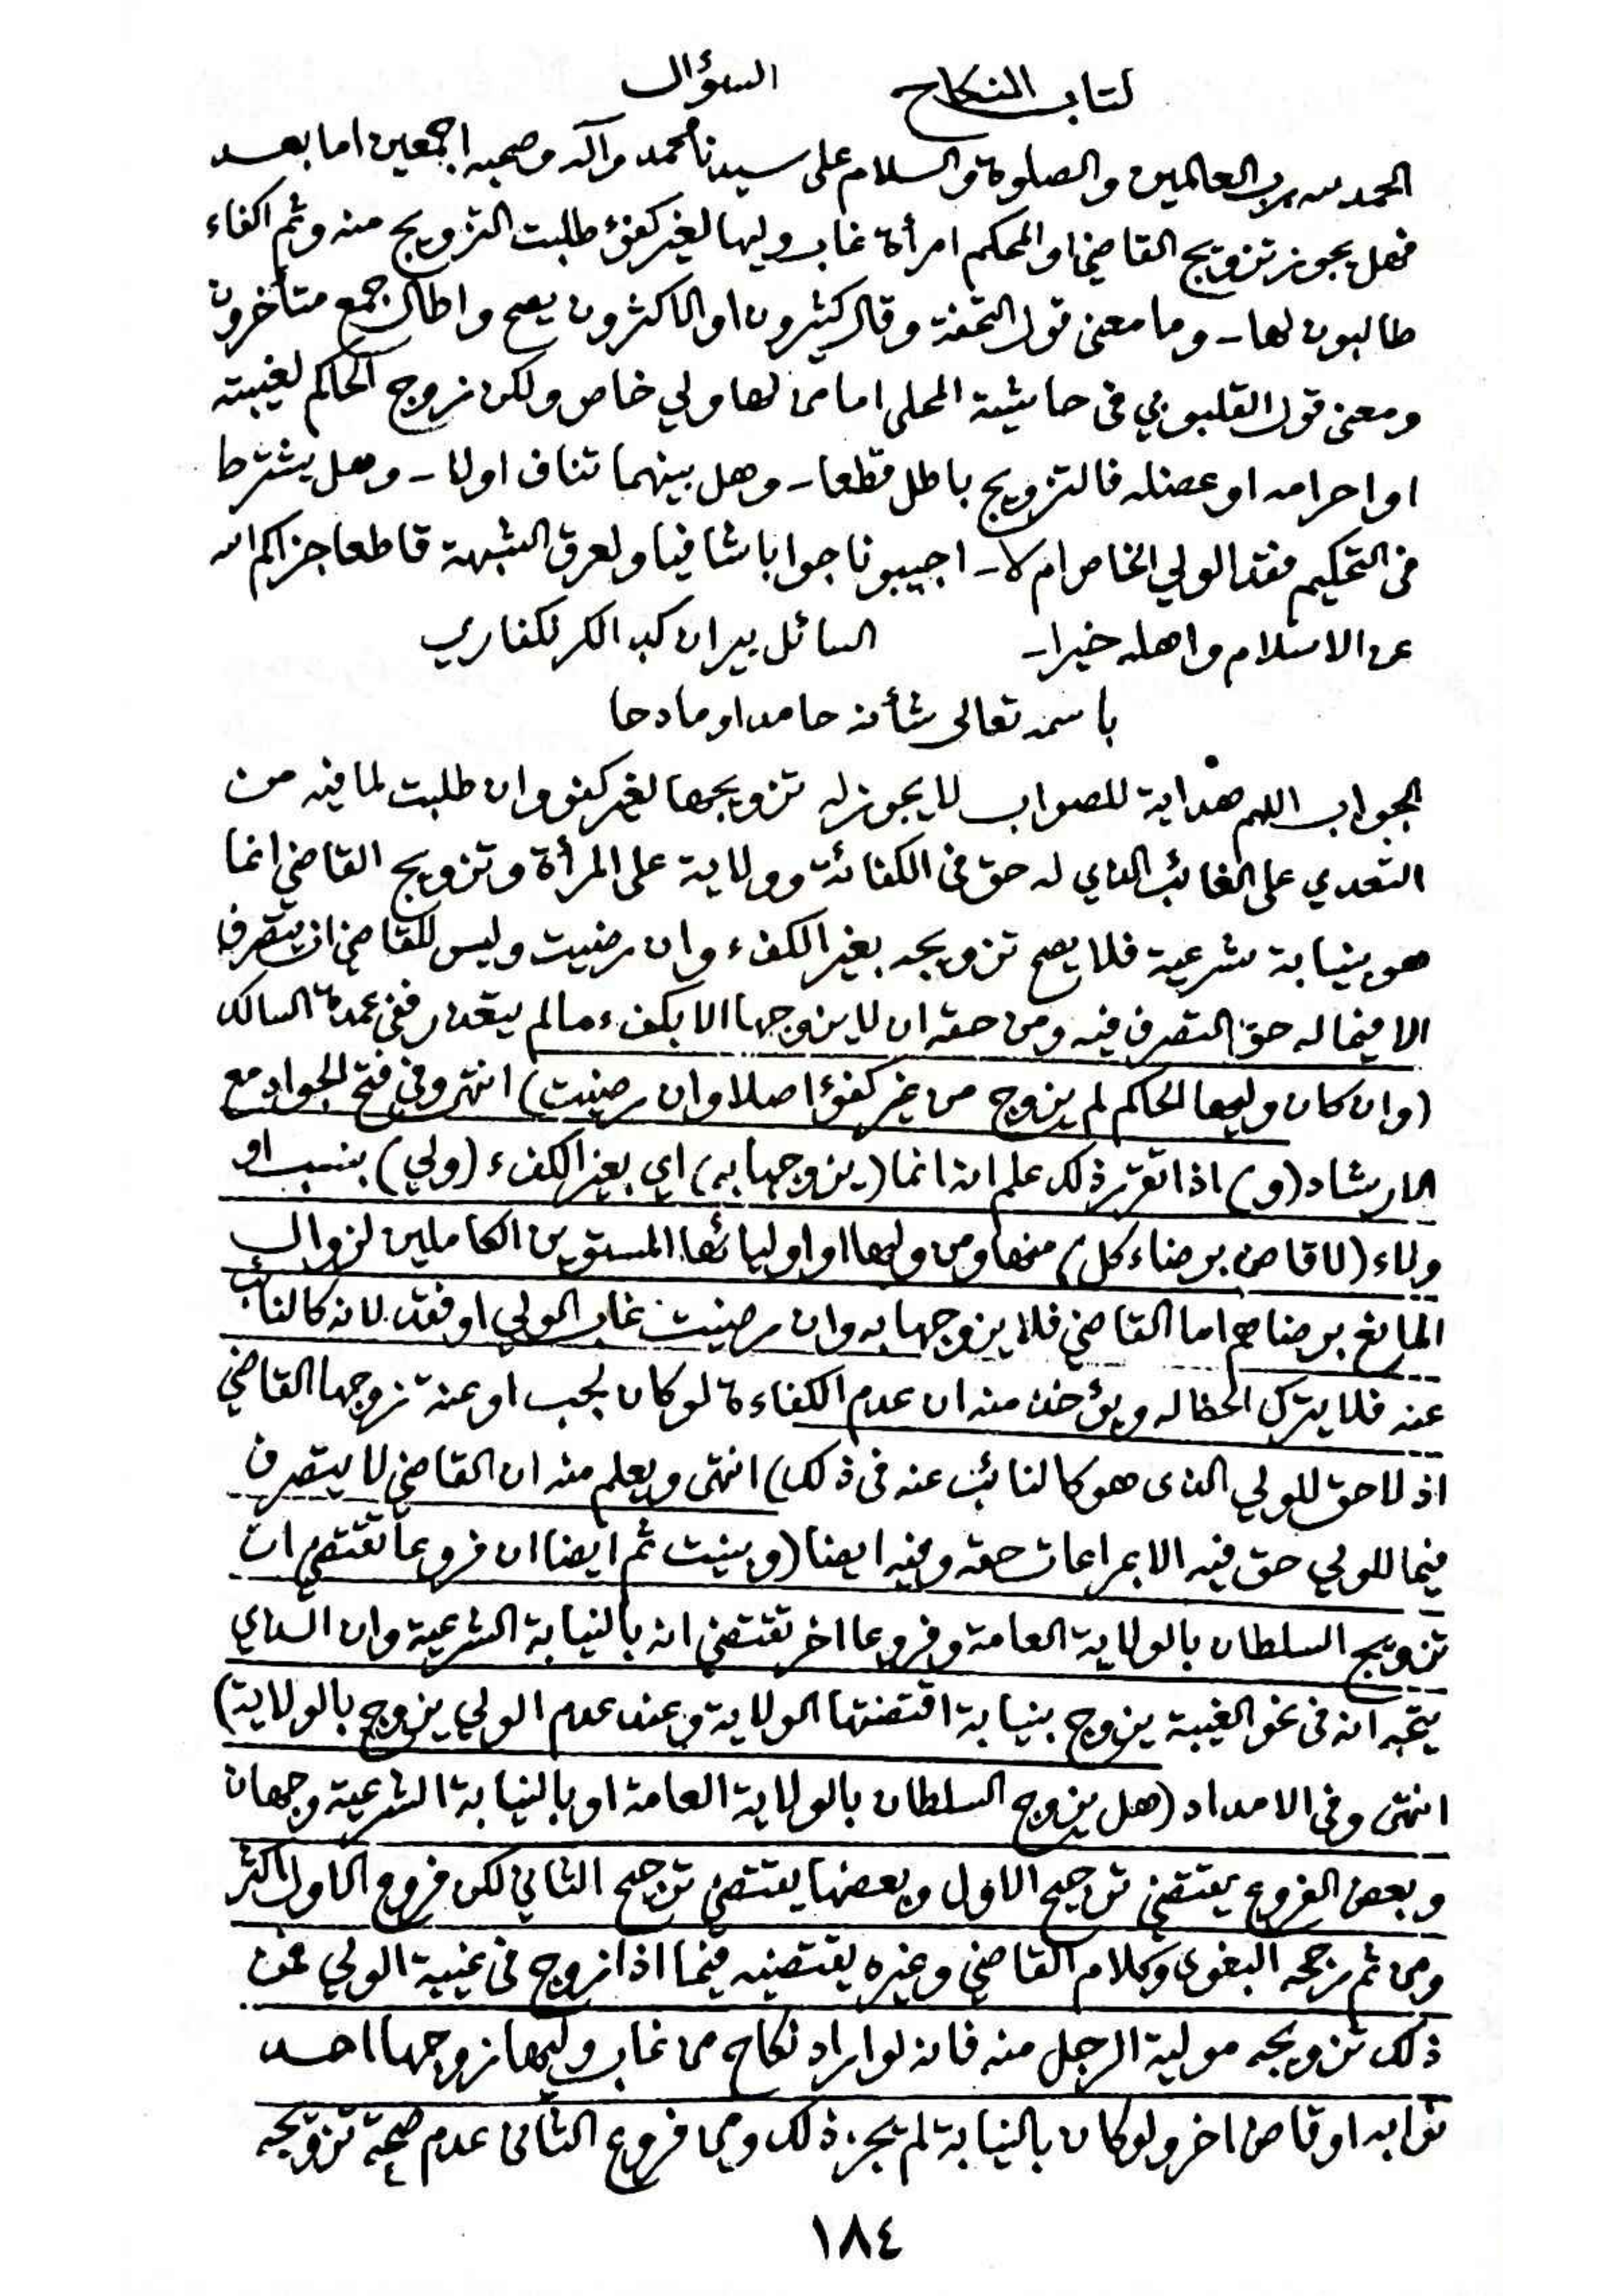 كتاب النكاح السؤال
الحمد لله رب العالمين والصلوة والسلام على سيدنا محمد وآله وصحبه اجمعين اما بعد
فهل يجوز تزويج القاضي او المحكم امرأة غاب وليها لغير كفؤ طلبت التزويج منه وثم اكفاء
طالبون لها ـ وما معنى قول التحفة وقال كثيرون او الاكثرون يصح واطال جمع متأخرون
ومعنى قول القليوبي في حاشية المحلى اما من لها ولي خاص ولكن زوج الحاكم لغيبته
او احرامه او عضله فالتزويج باطل قطعا ـ وهل بينهما تناف اولا ـ وهل يشترط
في التحكيم فقد الولي الخاص ام لا ـ اجيبونا جوابا شافيا ولعرق الشبهة قاطعا جزاكم الله
عن الاسلام واهله خيرا ـ السائل بيران كبد الكرلكفاري
باسمه تعالى شأنه حامدا ومادحا
الجواب اللهم هداية للصواب لا يجوز له تزويجها لغير كفو وان طلبت لما فيه من
التعدي على الغائب الذي له حق في الكفائة وولاية على المرأة وتزويج القاضي انما
هو بنيابة شرعية فلا يصح تزويجه بغير الكفء وان رضيت وليس للقاضي ان يتصرف
الا فيما له حق التصرف فيه ومن حقه ان لا يزوجها الا بكفء مالم يتعذر ففي عمدة السالك
(وان كان وليها الحاكم لم يزوج من غير كفؤ اصلا وان رضيت) انتهى وفي فتح الجواد مع
الارشاد (و) اذا تقرر ذلك علم انه انما (يزوجها به) اي بغير الكفء (ولي) بنسب او
ولاء (لا قاض برضاء كل) منها ومن وليها او اوليائها المستوين الكاملين لزوال
المانع برضاهم اما القاضي فلا يزوجها به وان رضيت غاب الولي او فقد لانه كالنائب
عنه فلا يترك الحظ له ويؤخذ منه ان عدم الكفاءة لو كان لجب او عنة زوجها القاضي
اذ لا حق للولي الذى هو كالنائب عنه في ذلك) انتهى ويعلم منه ان القاضي لا يتصرف
فيما للولي حق فيه الا بمراعات حقه وفيه ايضا (وبينت ثم ايضا ان فروعا تقتضي ان
تزويج السلطان بالولاية العامة وفروعا اخر تقتضي انه بالنيابة الشرعية وان الذي
يتجه انه في نحو الغيبة يزوج بنيابة اقتضتها الولاية وعند عدم الولي يزوج بالولاية)
انتهى وفي الامداد (هل يزوج السلطان بالولاية العامة او بالنيابة الشرعية وجهان
وبعض الفروع يقتضي ترجيح الاول وبعضها يقتضي ترجيح الثاني لكن فروع الاول اكثر
ومن ثم رجحه البغوى وكلام القاضي وغيره يقتضيه فيما اذا زوج في غيبة الولي فمن
ذلك تزويجه مولية الرجل منه فانه لو اراد نكاح من غاب وليها زوجها احد
نوابه او قاض اخر ولو كان بالنيابة لم يجز ذلك ومن فروع الثاني عدم صحة تزويجه
١٨٤